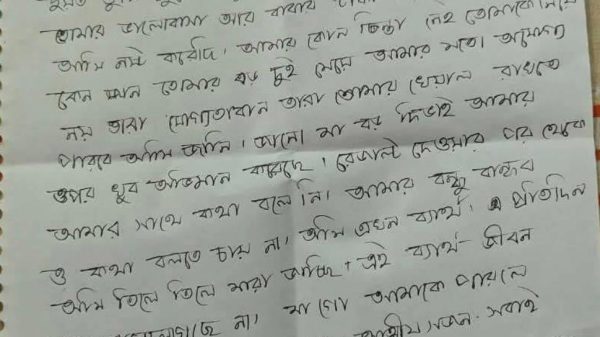 তোমার ভালোবাসা আর বাবার
আমি নষ্ট করেছি। আমার কোন চিন্তা নেই তোমাকে নিয়ে
কোন কারন তোমার বড় দুই মেয়ে আমার মতো অযোগ্য
নয় তারা যোগ্যতাবান তারা তোমার খেয়াল রাখতে
পারবে আমি জানি। জানো মা বড় দিভাই আমার
ওপর খুব অভিমান করেছে। রেজাল্ট দেওয়ার পর থেকে
আমার সাথে কথা বলে নি। আমার বন্ধু বান্ধব
ও কথা বলতে চায় না। আমি এখন ব্যার্থ। প্রতিদিন
আমি তিলে তিলে মারা যাচ্ছি। এই ব্যার্থ জীবন
না। মা গো আমাকে পারলে
সবাই